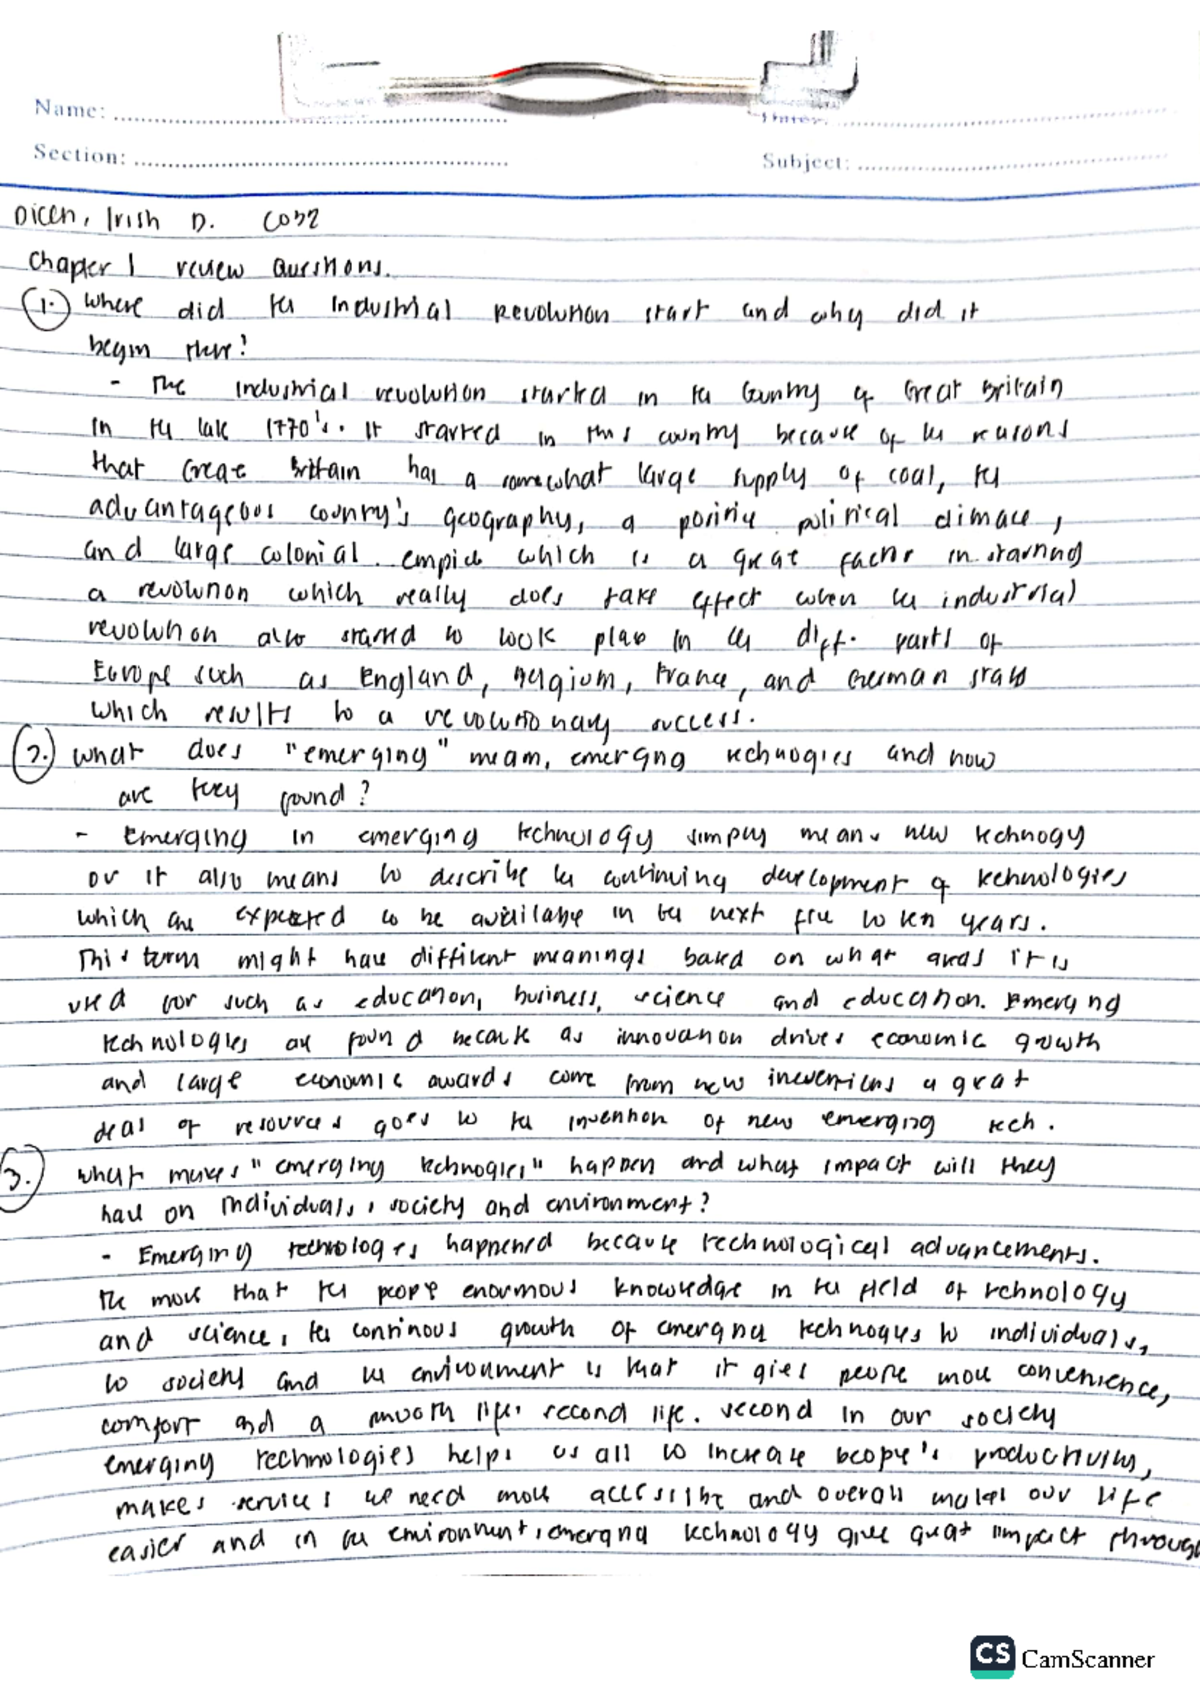 Name:
Section:
Subject:
Dicen, Irish D. COS2
Chapter 1 review Questions.
1. Where did the Industrial Revolution start and why did it
begin there?
- The industrial revolution started in the country of Great Britain
in the late 1770's. It started in this country because of the reasons
that Great Britain has a somewhat large supply of coal, the
advantageous country's geography, a positive political climate,
and large colonial empire which is a great factor in starting
a revolution which really does take effect when the industrial
revolution also started to took place in the diff. parts of
Europe such as England, Belgium, France, and German states
which results to a revolutionary success.
2. What does "emerging" mean, emerging technogies and how
are they found?
- Emerging in emerging technology simply means new technogy
or it also means to describe the continuing development of technologies
which are expected to be available in the next five to ten years.
This term might have different meanings based on what areas it is
used for such as education, business, science and education. Emerging
technologies are found because as innovation drives economic growth
and large economic awards come from new a great
deas of resources goes to the invention of new emerging tech.
3. What makes "emerging technogies" happen and what impact will they
have on individuals, society and environment?
- Emerging technologies happened because technological advancements.
The more that the people enormous knowledge in the field of technology
and science, the continous growth of emerging technogies to individuals,
to society and the environment is that it gives people more convenience,
comfort and a smooth life. second life. second in our society
emerging technologies helps us all to increase people's productivity,
makes services we need more accessible and overall makes our life
easier and in the environment, emerging technology give great impact through
CS CamScanner